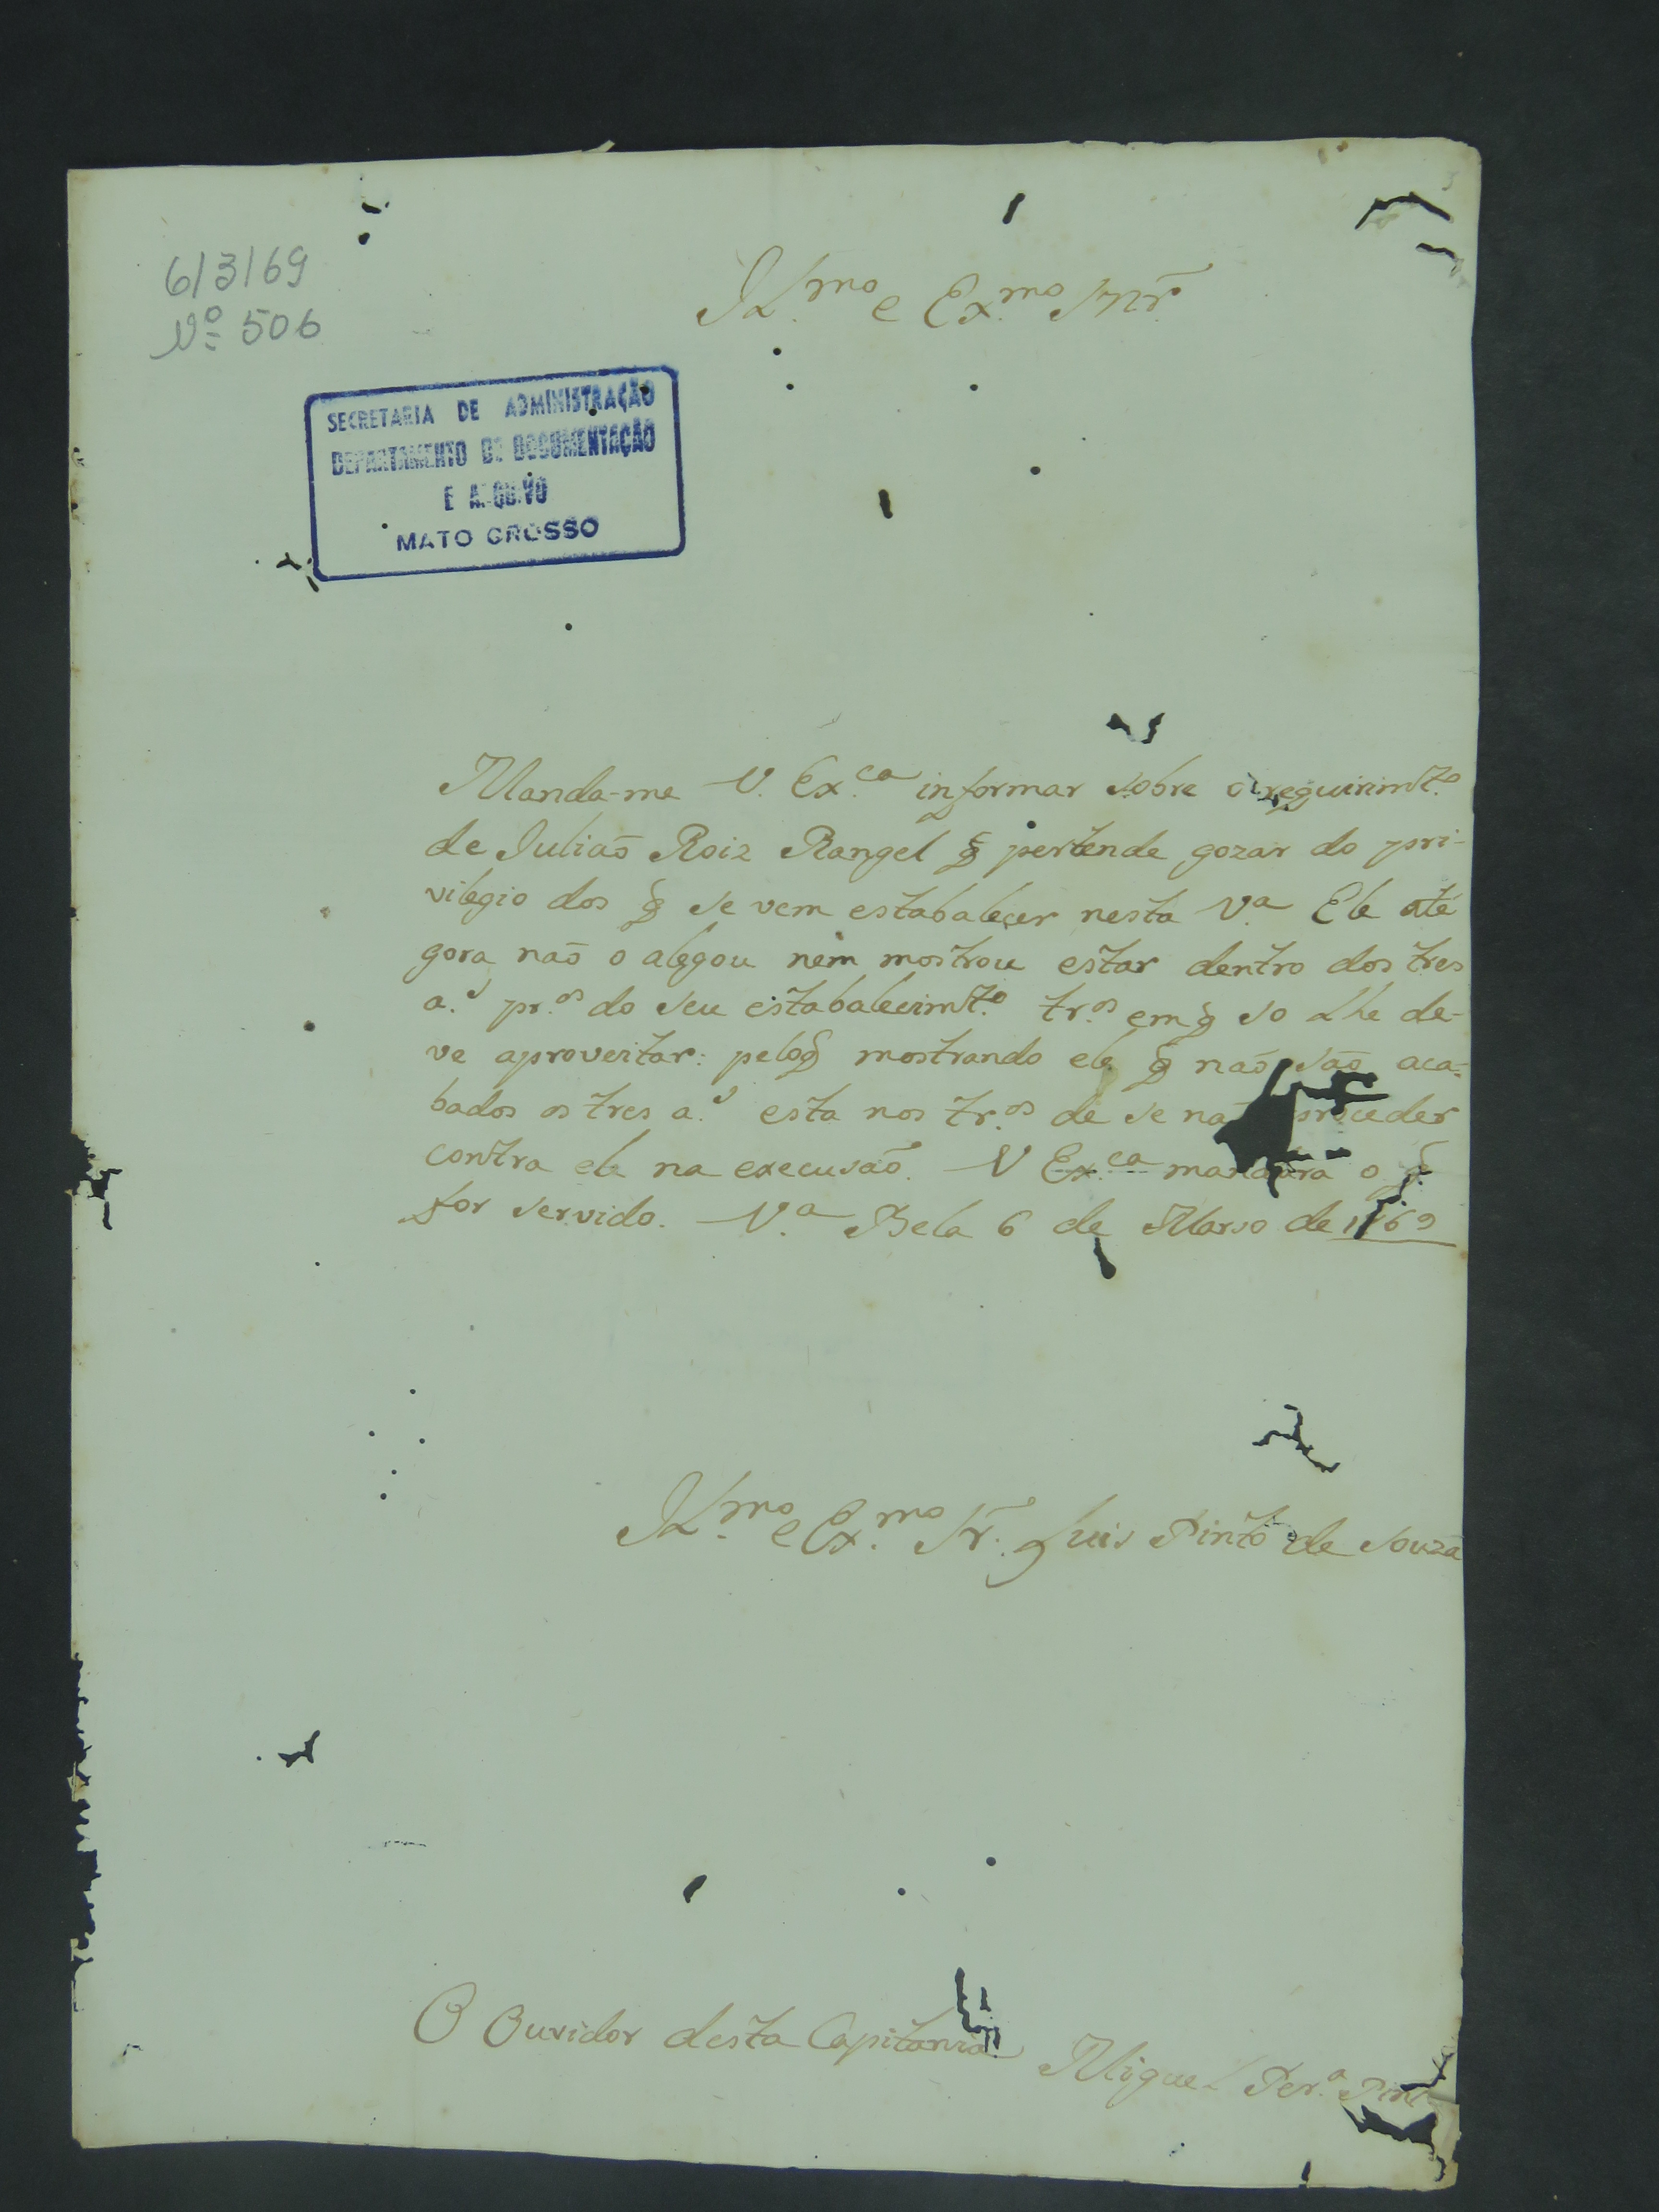 6/3/69
Nº 506
Il.mo e Ex.mo Snr̃
SECRETARIA DE ADMINISTRAÇÃO
DEPARTAMENTO DE DOCUMENTAÇÃO
E ARQUIVO
MATO GROSSO
Manda-me V. Ex.ca informar sobre o requirimto
de Julião Roiz Rangel q̃ pertende gozar do pri-
vilegio dos q̃ se vem estabalecer nesta V.a Ele até
gora não o alegou nem mostrou estar dentro dos tres
a.s pr.os do seu estabalecimto tr.os em q̃ so lhe de-
ve aproveitar: pelo q̃ mostrando ele q̃ não são aca-
bados os tres a.s esta nos tr.os de se não proceder
contra ele na execusão. V Ex.ca mandara o q̃
for servido. V.a Bela 6 de Marso de 1769
Il.mo e Ex.mo Sr̃. Luis Pinto de Souza
O Ouvidor desta Capitania Miguel Per.a Pin